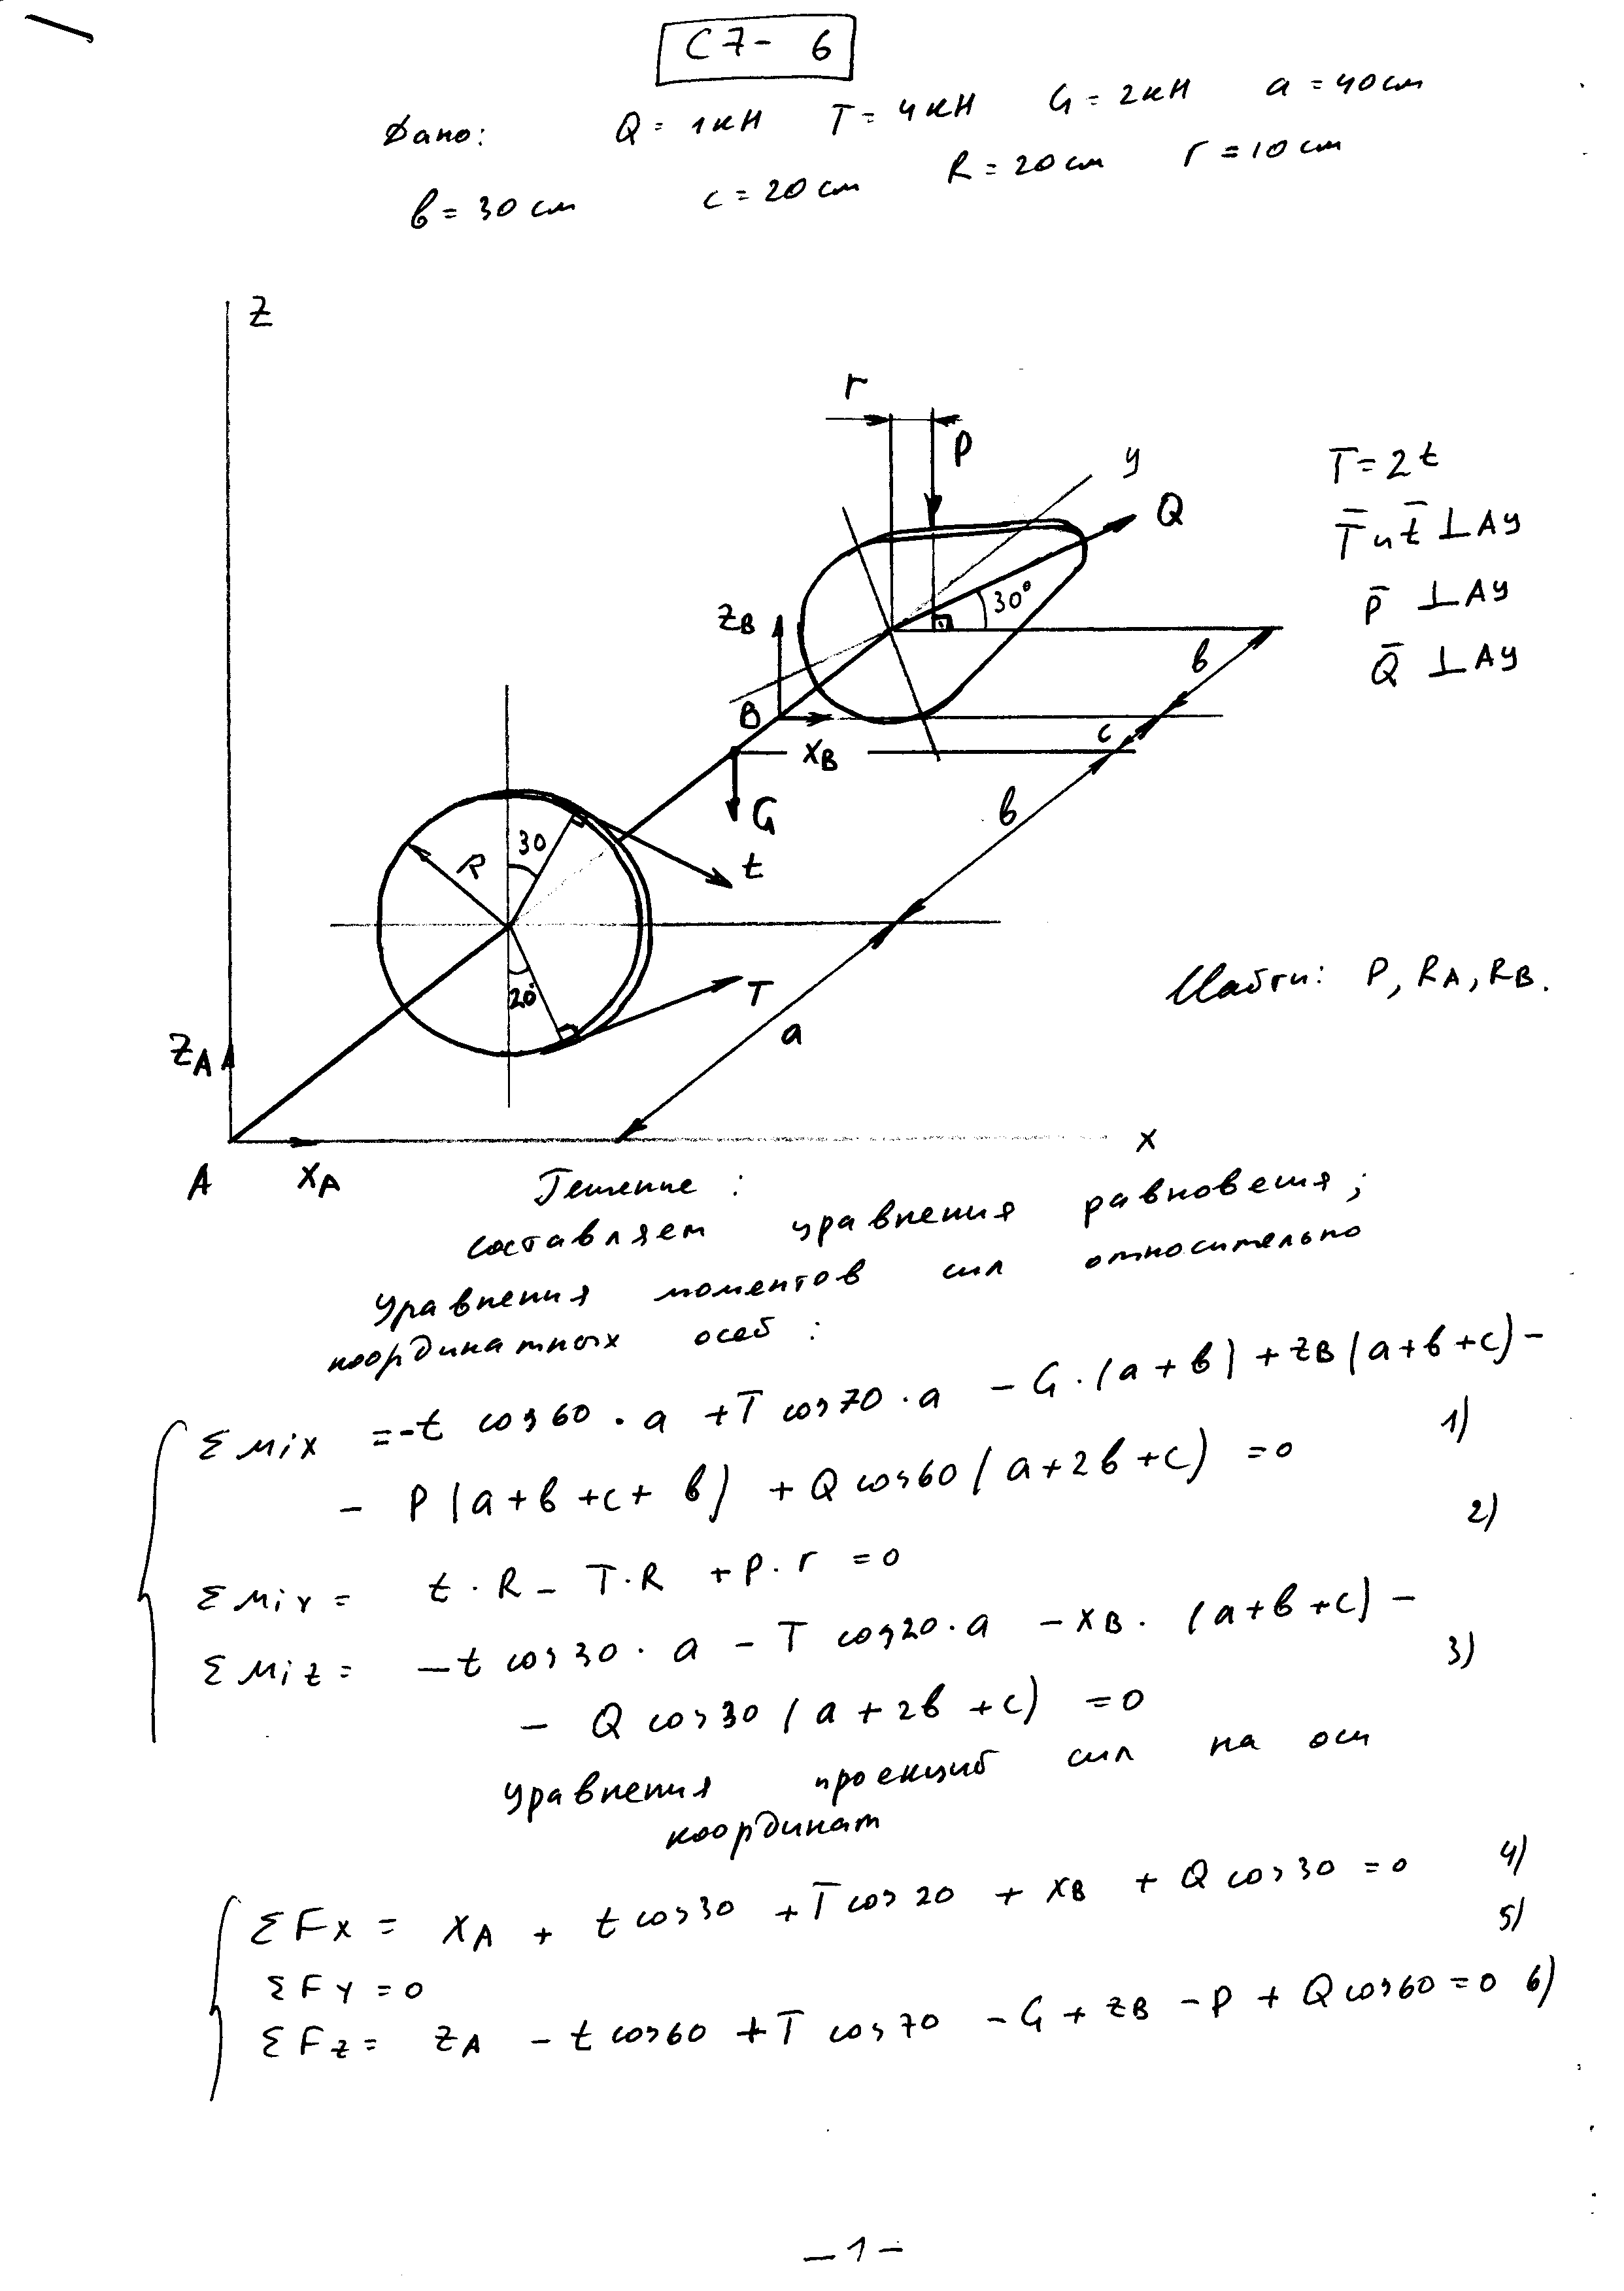 С7- 6
Дано: Q = 1кН T = 4кН G = 2кН a = 40см
в = 30 см c = 20 см R = 20 см r = 10 см
Z
r
P
y
Q
30°
T = 2t
T̄ и t̄ ⊥ Ay
P̄ ⊥ Ay
Q̄ ⊥ Ay
ZB
B
XB
в
c
в
G
R
30
t
20°
T
a
Найти: P, RA, RB.
ZA
A XA
x
Решение:
составляем уравнения равновесия;
Уравнения моментов сил относительно
координатных осей:
Σ Mix = -t cos60 · a + T cos70 · a - G · (a + в) + ZB (a + в + c) -
1)
- P (a + в + c + в) + Q cos60 (a + 2в + c) = 0
2)
Σ Miy = t · R - T · R + P · r = 0
Σ Miz = - t cos30 · a - T cos20 · a - XB · (a + в + c) -
3)
- Q cos30 (a + 2в + c) = 0
Уравнения проекций сил на оси
координат
Σ Fx = XA + t cos30 + T cos20 + XB + Q cos30 = 0 4)
Σ Fy = 0 5)
Σ Fz = ZA - t cos60 + T cos70 - G + ZB - P + Q cos60 = 0 6)
- 1 -